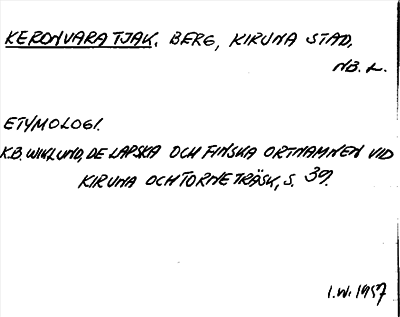 KERONVARATJAK. BERG, KIRUNA STAD,
NB. L.
ETYMOLOGI.
K.B. WIKLUND, DE LAPSKA OCH FINSKA ORTNAMNEN VID
KIRUNA OCH TORNETRÄSK, S. 39.
I.W. 1957